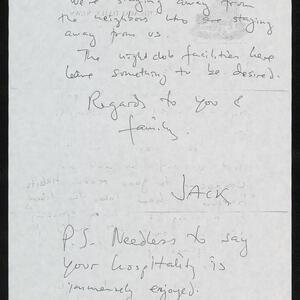 We're staying away from
the neighbors who are staying
away from us.
The nightclub facilities here
leave something to be desired.
Regards to you &
family.
JACK
P.S. Needless to say
your hospitality is
immensely enjoyed.